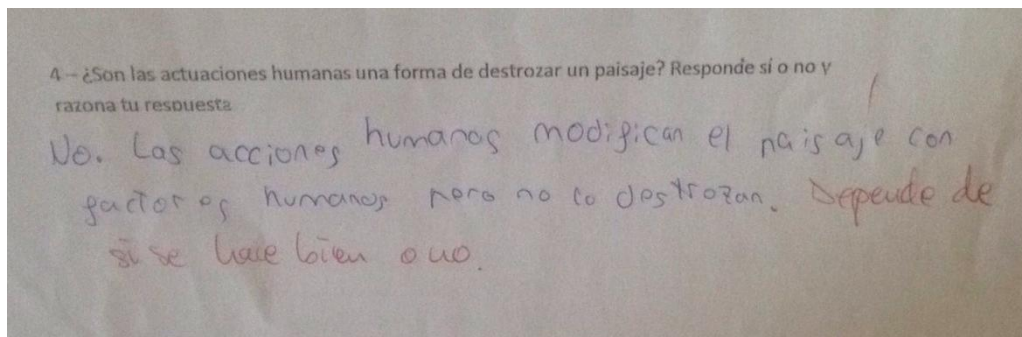 4 – ¿Son las actuaciones humanas una forma de destrozar un paisaje? Responde sí o no y
razona tu respuesta
No. Las acciones humanas modifican el paisaje con
factores humanos pero no lo destrozan. Depende de
si se hace bien o no.